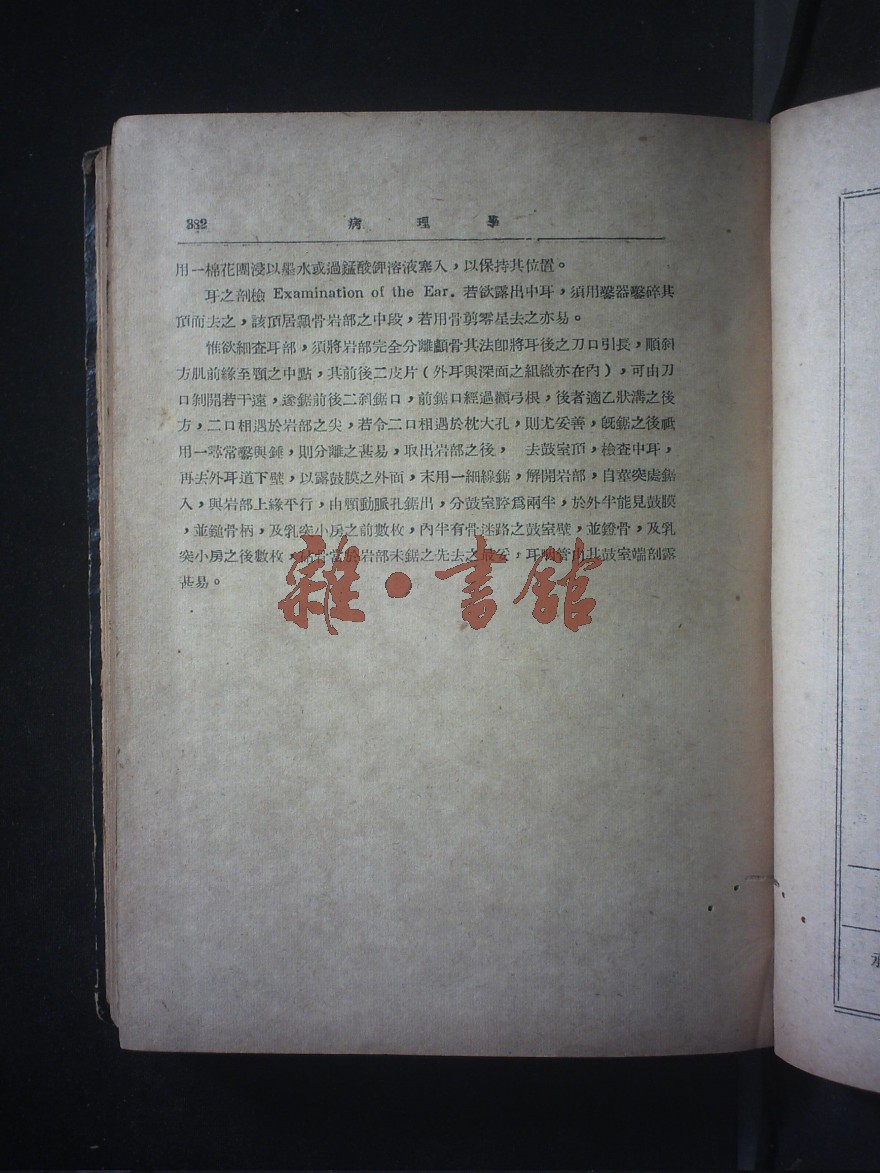 382 病理學
用一棉花團浸以墨水或過錳酸鉀溶液塞入，以保持其位置。
耳之剖檢 Examination of the Ear. 若欲露出中耳，須用鑿器鑿碎其
頂而去之，該頂居顳骨岩部之中段，若用骨剪零星去之亦易。
惟欲細查耳部，須將岩部完全分離顳骨其法卽將耳後之刀口引長，順斜
方肌前緣至頸之中點，其前後二皮片（外耳與深面之組織亦在內），可由刀
口剝開若干遠，遂鋸前後二斜鋸口，前鋸口經過顴弓根，後者適乙狀溝之後
方，二口相遇於岩部之尖，若令二口相遇於枕大孔，則尤妥善，旣鋸之後祗
用一尋常鑿與錘，則分離之甚易，取出岩部之後， 去鼓室頂，檢查中耳，
再去外耳道下壁，以露鼓膜之外面，末用一細線鋸，解開岩部，自莖突處鋸
入，與岩部上緣平行，由頸動脈孔鋸出，分鼓室腔爲兩半，於外半能見鼓膜
，並鎚骨柄，及乳突小房之前數枚，內半有骨迷路之鼓室壁，並鐙骨，及乳
突小房之後數枚，砧骨當於岩部未鋸之先去之最妥，耳咽管由其鼓室端剖露
甚易。
雜·書館